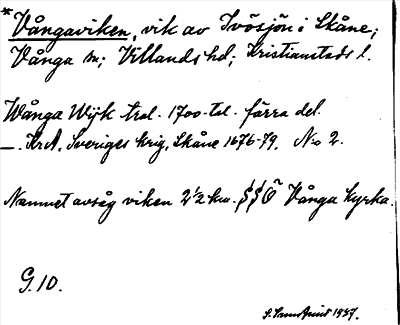 * Vångaviken, vik av Ivösjön i Skåne;
Vånga sn; Villands hd; Kristianstads l.
Wånga Wijk trol. 1700-tal. förra del.
—. KrA. Sveriges krig, Skåne 1676-79. No 2.
Namnet avsåg viken 2½ km. SSO Vånga kyrka.
G.10.
1937.